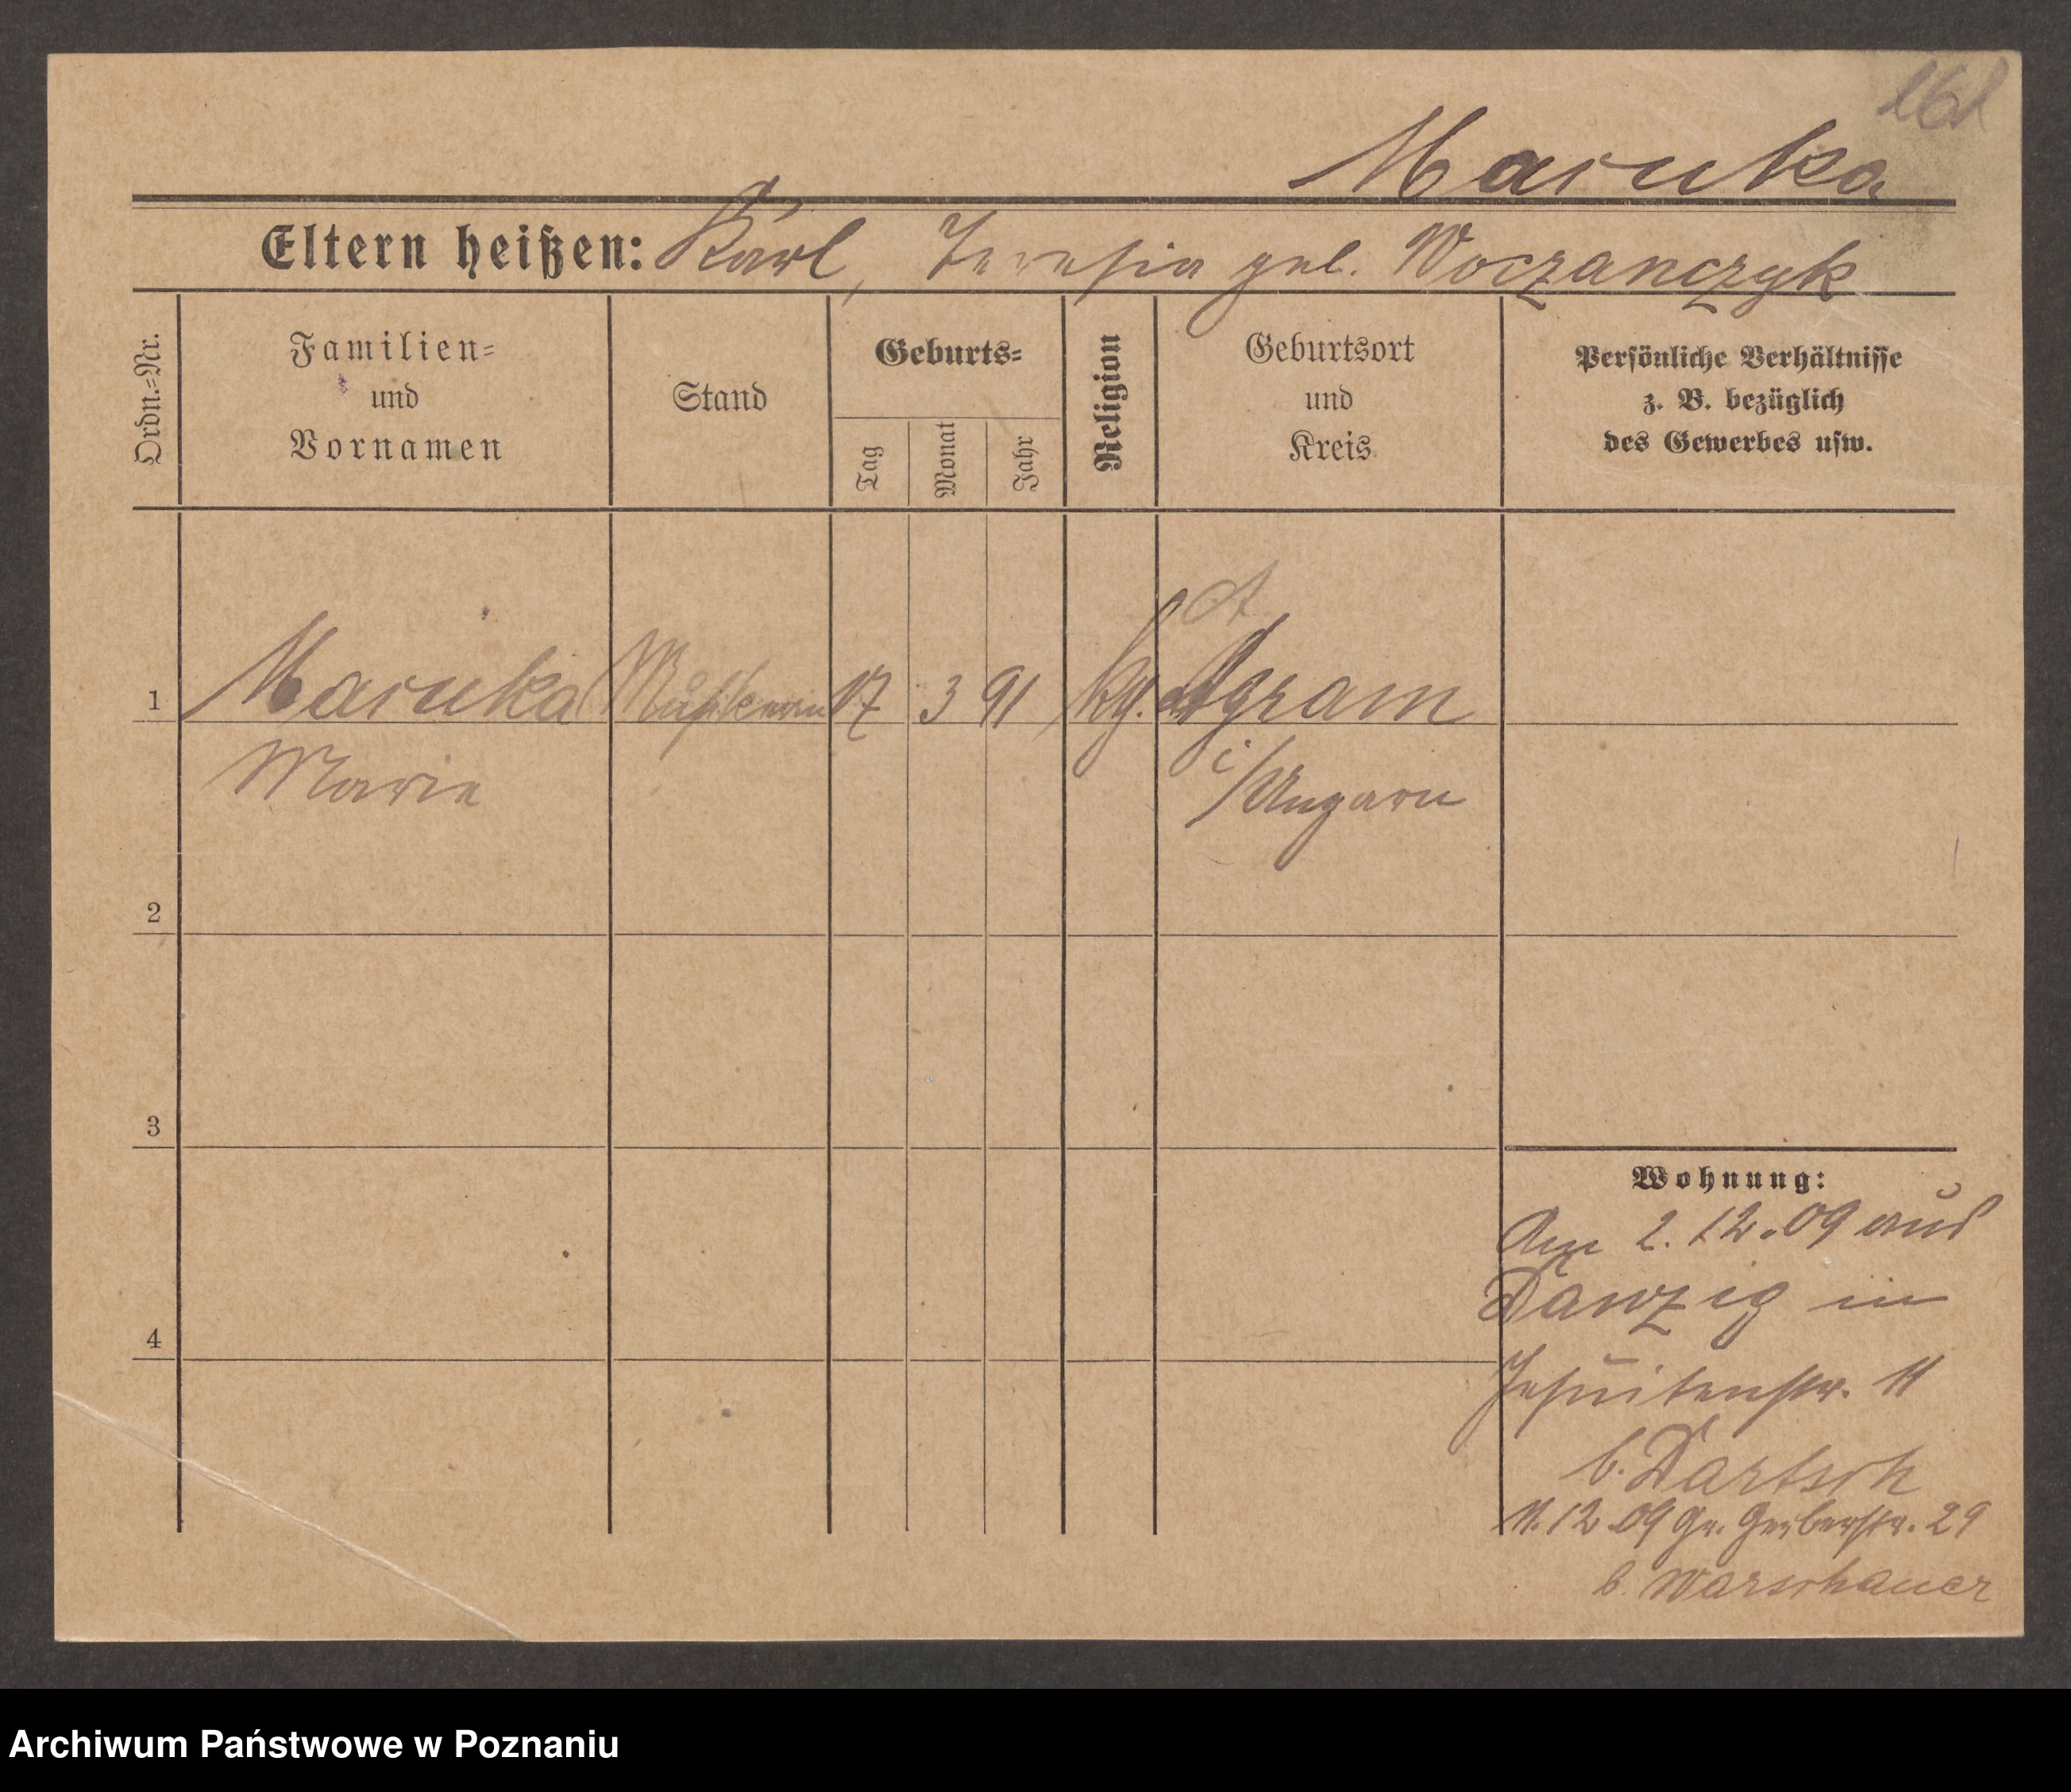 161
Maruka
Eltern heißen: Karl, Teresia geb. Woczanczyk
Ordn.-Nr.
Familien-
und
Vornamen
Stand
Geburts-
Tag
Monat
Jahr
Religion
Geburtsort
und
Kreis
Persönliche Verhältnisse
z. B. bezüglich
des Gewerbes usw.
A
1 Maruka 17 3 91 Agram
Marie i/Ungarn
2
3
4
Wohnung:
Am 2.12.09 aus
Danzig in
Jesuitenstr. 11
b. Dartsch
11.12.09 Gr. Gerberstr. 29
b. Warschauer
Archiwum Państwowe w Poznaniu